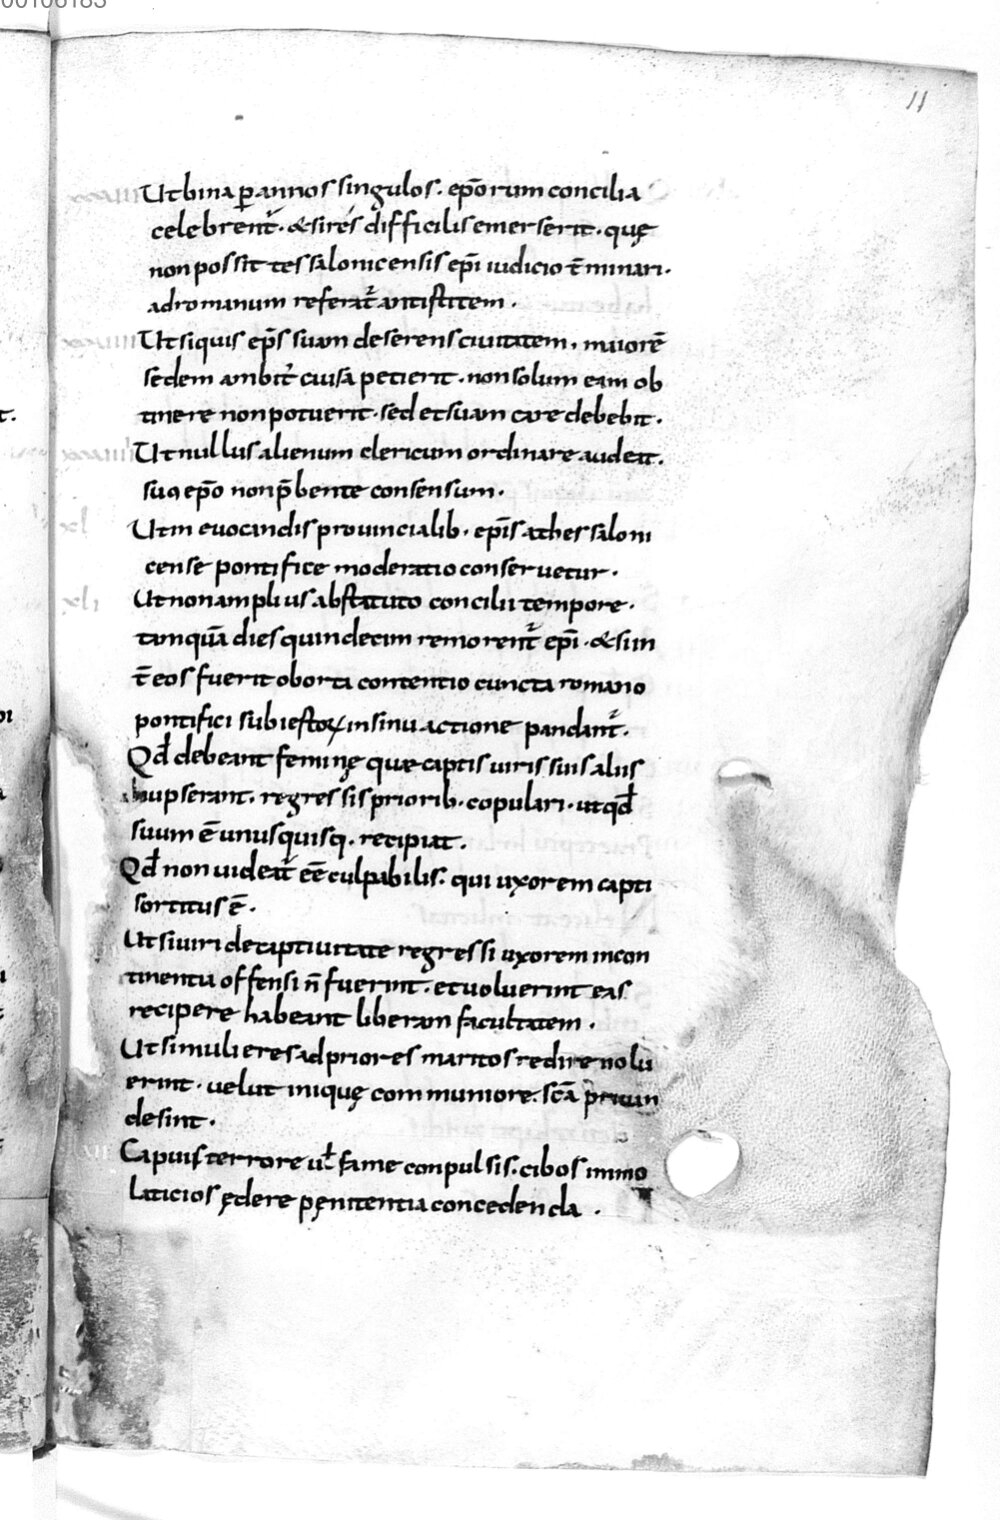 11
Ut bina p̱ annos singulos. ep̄orum concilia
celebrent᷑. & si res difficilis emerserit. quę
non possit tessalonicensis ep̄i iudicio t̄minari.
ad romanum referat᷑ antistitem.
Ut siquis ep̄s suam deserens ciuitatem, maiorē
sedem ambit᷑ cuisā petierit. non solum eam ob
tinere non potuerit. sed et suam care debebit.
Ut nullus alienum clericum ordinare audeat.
suo ep̄o non p̄bente consensum.
Ut in euocandis prouincialib. ep̄is a thessaloni
cense pontifice moderatio conseruetur.
Ut non amplius abstatuto concilii tempore.
tanquā dies quindecim remorent᷑ ep̄i. & si in
t̄ eos fuerit oborta contentio cuncta romano
pontifici subiectoꝝ insinuactione pandant᷑.
Qd̄ debeant feminę quae captis uiris suis aliis
nupserant. regressis priorib. copulari. ut qd̄
suum ē unusquisq. recipiat.
Qd̄ non uideat᷑ eē culpabilis. qui uxorem capti
sortitus ē.
Ut si uiri de captiuitate regressi uxorem incon
tinentia offensi n̄ fuerint. et uoluerint eas
recipere habeant liberam facultatem.
Ut si mulieres ad priores maritos redire nolu
erint. uelut inique communiore. scā priuan
de sint.
Capuis terrore ul̄ fame conpulsis. cibos immo
laticios ędere pęnitentia concedenda.